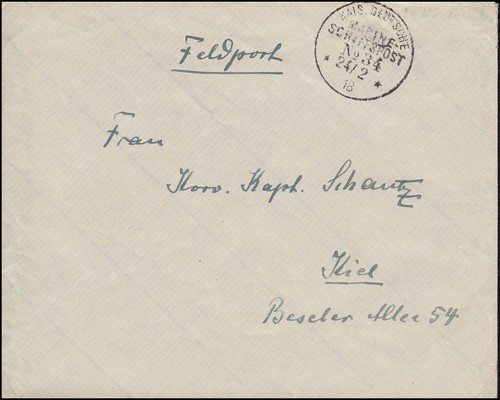 KAIS. DEUTSCHE
MARINE-
SCHIFFSPOST
No 34
* 24/2 *
18
Feldpost
Frau
Korv. Kapt. Schantz
Kiel
Beseler Allee 54